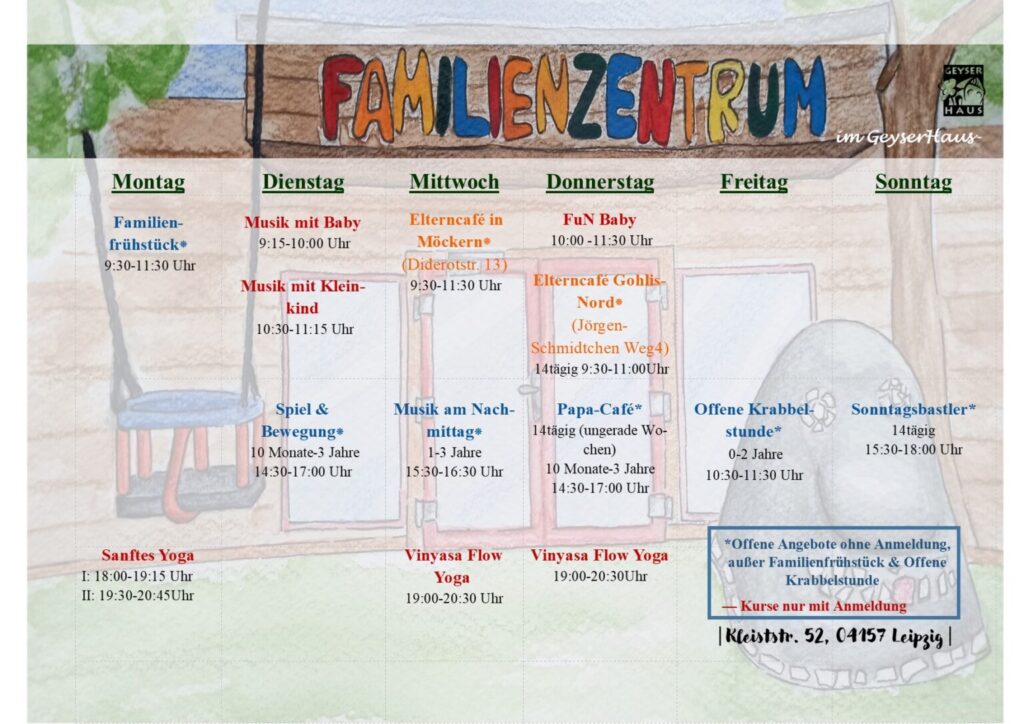 FAMILIENZENTRUM
GEYSER
HAUS
im GeyserHaus
Montag
Familien-
frühstück*
9:30-11:30 Uhr
Sanftes Yoga
I: 18:00-19:15 Uhr
II: 19:30-20:45Uhr
Dienstag
Musik mit Baby
9:15-10:00 Uhr
Musik mit Klein-
kind
10:30-11:15 Uhr
Spiel &
Bewegung*
10 Monate-3 Jahre
14:30-17:00 Uhr
Mittwoch
Elterncafé in
Möckern*
(Diderotstr. 13)
9:30-11:30 Uhr
Musik am Nach-
mittag*
1-3 Jahre
15:30-16:30 Uhr
Vinyasa Flow
Yoga
19:00-20:30 Uhr
Donnerstag
FuN Baby
10:00 -11:30 Uhr
Elterncafé Gohlis-
Nord*
(Jörgen-
Schmidtchen Weg4)
14tägig 9:30-11:00Uhr
Papa-Café*
14tägig (ungerade Wo-
chen)
10 Monate-3 Jahre
14:30-17:00 Uhr
Vinyasa Flow Yoga
19:00-20:30Uhr
Freitag
Offene Krabbel-
stunde*
0-2 Jahre
10:30-11:30 Uhr
Sonntag
Sonntagsbastler*
14tägig
15:30-18:00 Uhr
*Offene Angebote ohne Anmeldung,
außer Familienfrühstück & Offene
Krabbelstunde
— Kurse nur mit Anmeldung
|Kleiststr. 52, 04157 Leipzig|